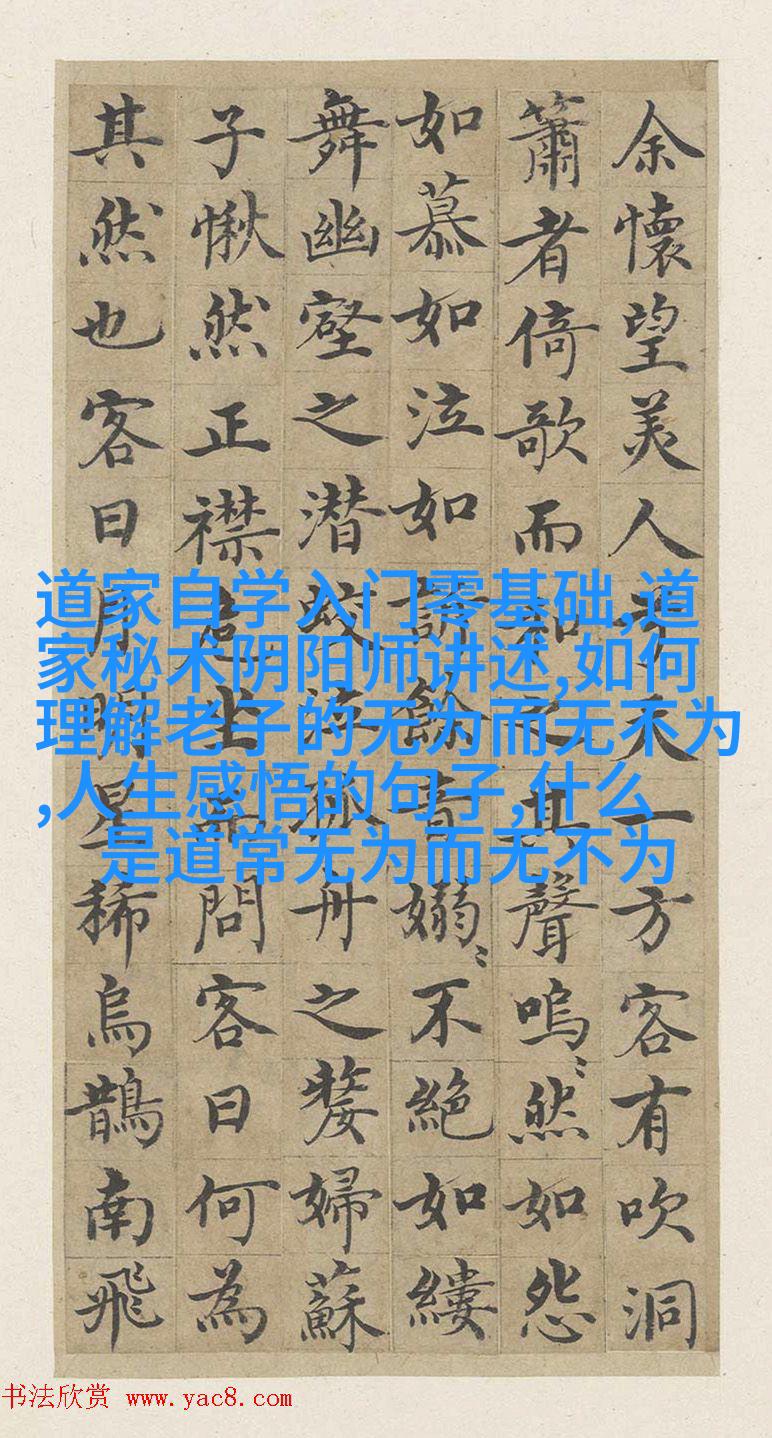 余懷望美人兮天一方客有吹洞
簫者倚歌而和之其聲嗚〻然如怨
如慕如泣如訴餘音嫋〻不絕如縷
舞幽壑之潜蛟泣孤舟之嫠婦蘇
子愀然正襟危坐而問客曰何為
其然也客曰月明星稀烏鵲南飛
道家自学入门零基础,道
家秘术阴阳师讲述,如何
理解老子的无为而无不为
,人生感悟的句子,什么
是道常无为而无不为
书法欣赏 www.yac8.com